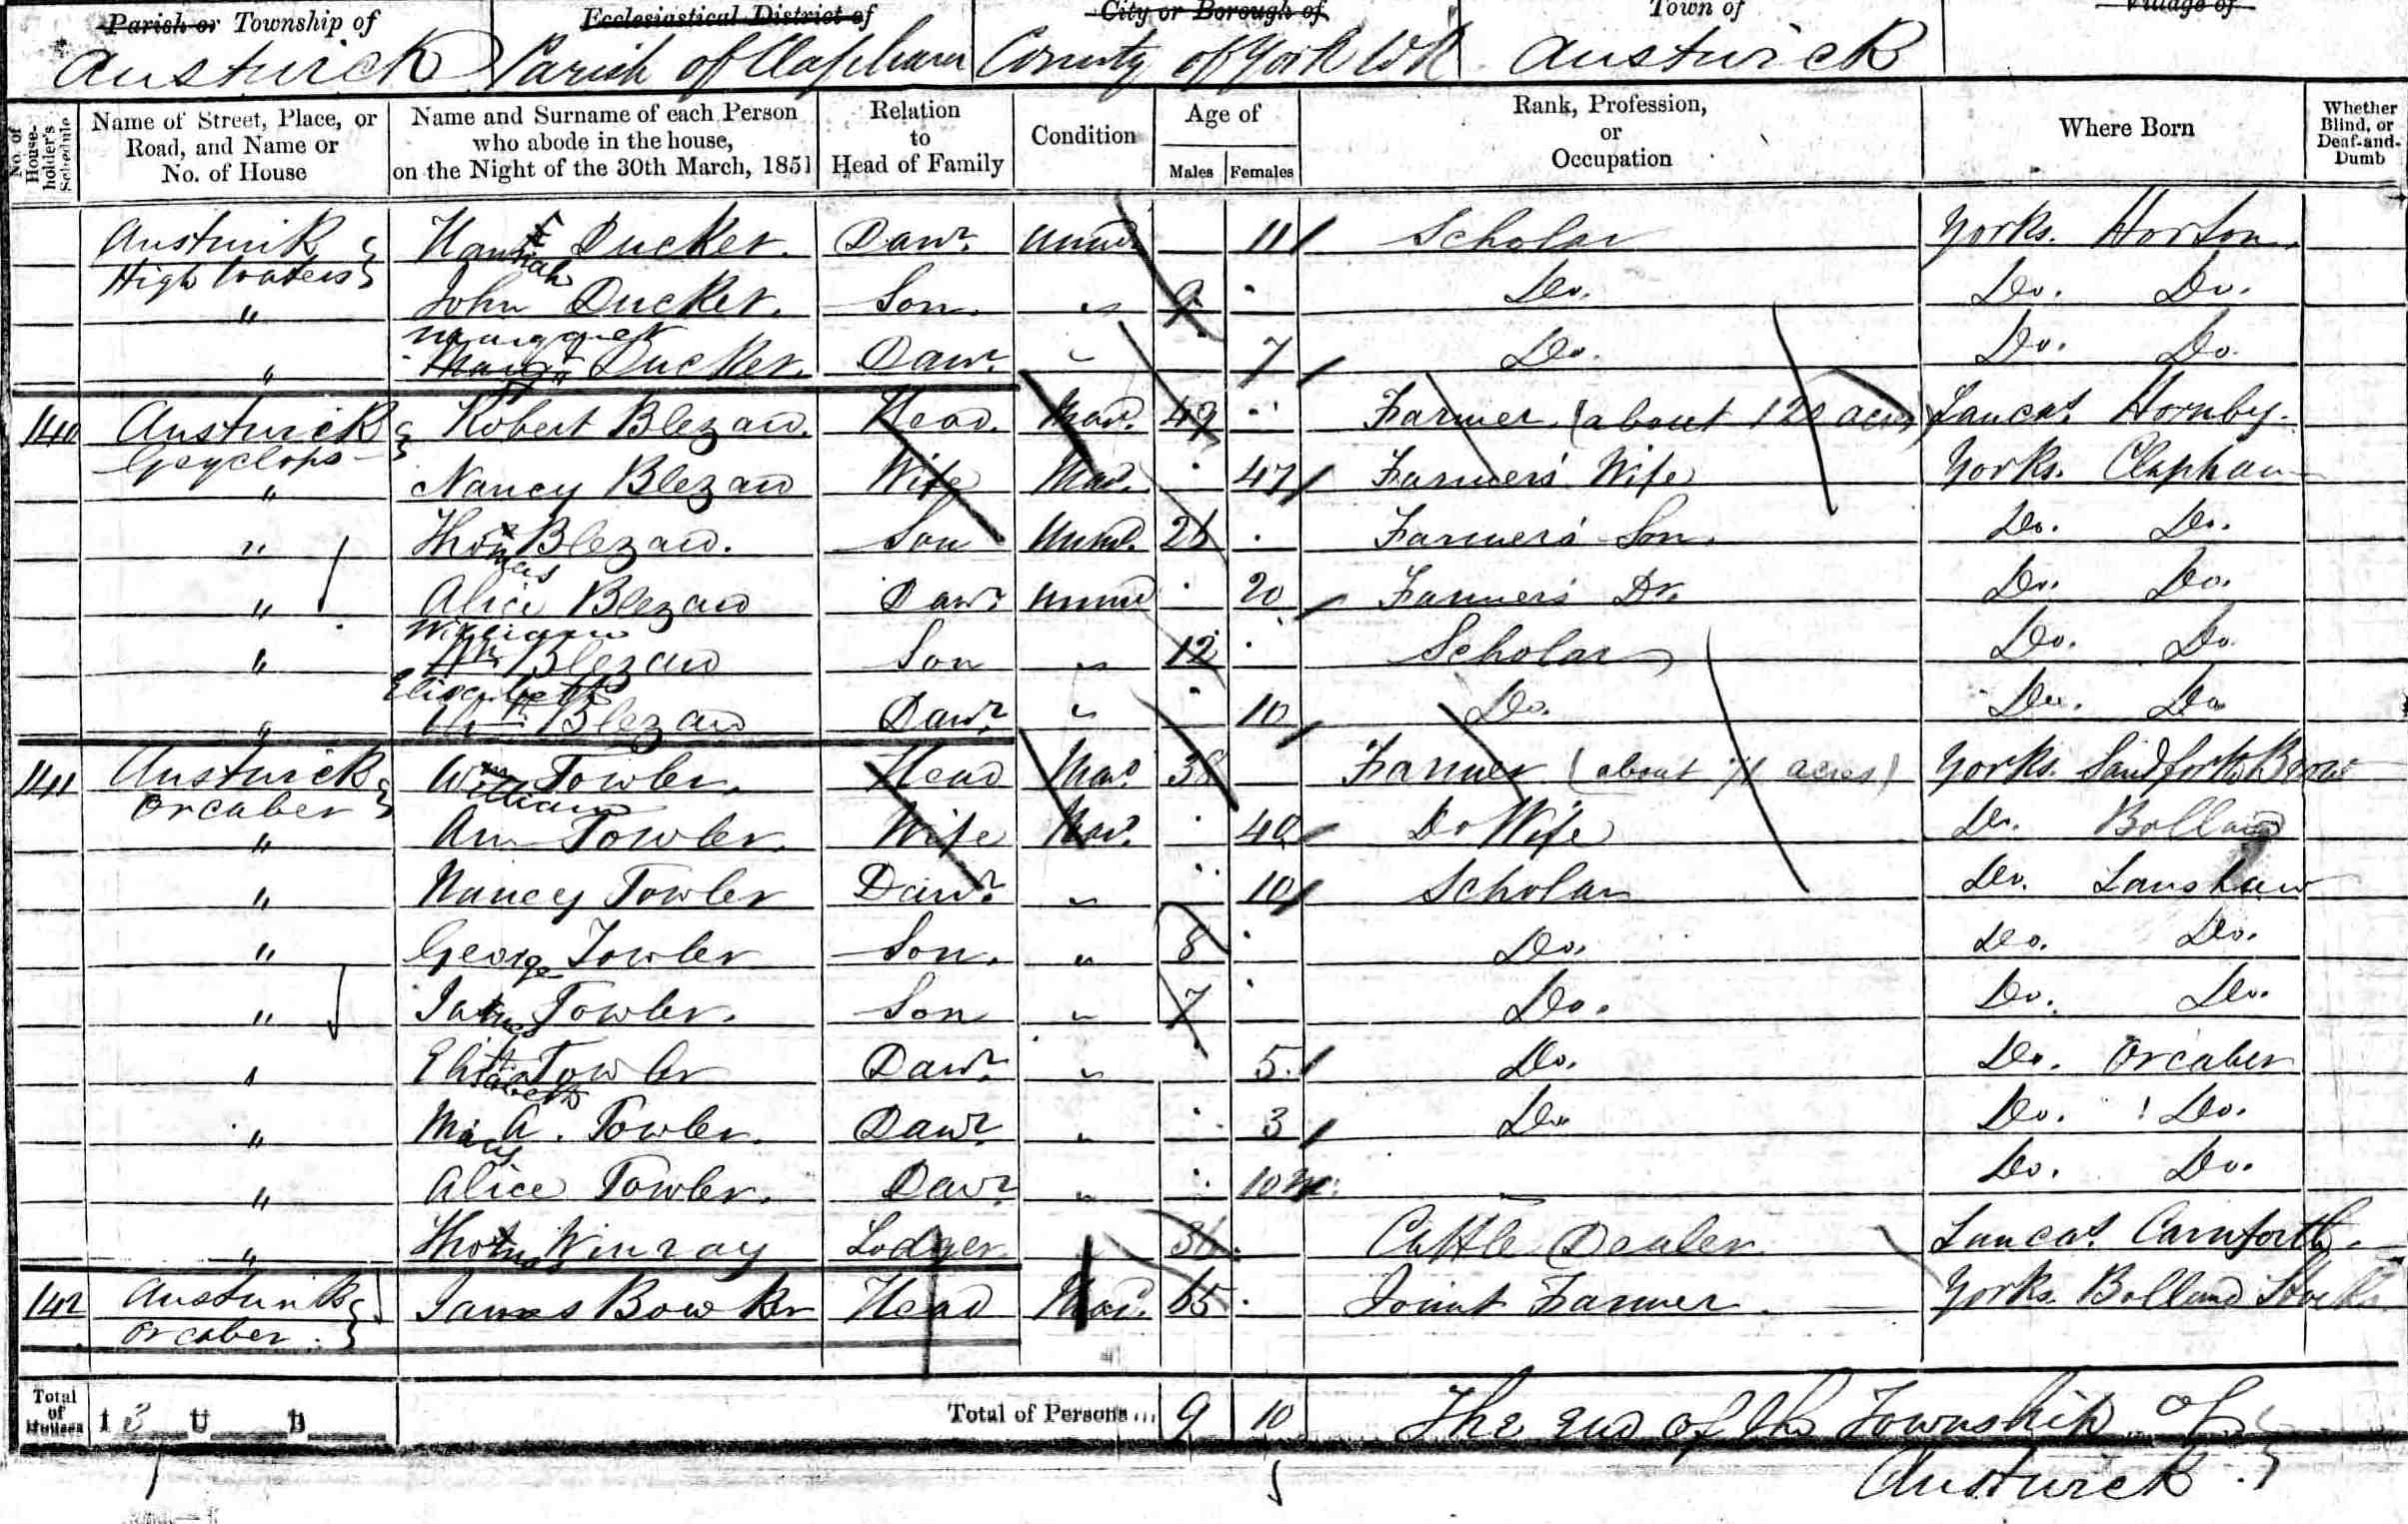 Parish or Township of Ecclesiastical District of City or Borough of Town of Village of
Austwick Parish of Clapham County of York WR Austwick
No. of House-holder's Schedule Name of Street, Place, or Road, and Name or No. of House Name and Surname of each Person who abode in the house, on the Night of the 30th March, 1851 Relation to Head of Family Condition Age of Males Females Rank, Profession, or Occupation Where Born Whether Blind, or Deaf-and-Dumb
Austwick Hannah Ducker. Dawr. Unmd. 11 Scholar Yorks. Horton.
High
" John Ducker. Son. " 9 Do. Do. Do.
" Margaret Ducker. Dawr. " 7 Do. Do. Do.
140 Austwick Robert Blezard. Head. Mard. 49 Farmer (about 120 acres) Lancas. Hornby.
" Nancy Blezard Wife Mard. 47 Farmer's Wife Yorks. Clapham
" Thomas Blezard. Son Unmd. Farmer's Son. Do. Do.
" Alice Blezard Dawr. Unmd 20 Farmer's Dr. Do. Do.
" William Wm Blezard Son " 12 Scholar Do. Do.
" Elizabeth Blezard Dawr. " 10 Do. Do. Do.
141 Austwick Orcaber Wm William Towler. Head Mard. 38 Farmer (about 71 acres) Yorks.
" Ann Towler. Wife Mard. 40 Do Wife Do. Bolland
" Nancy Towler Dawr. " 10 Scholar Do. Lanshaw
" George Towler Son. " 8 Do. Do. Do.
" James Towler. Son " 7 Do. Do. Do.
" Elizabeth Towler Dawr. " 5. Do. Do. Orcaber
" Mary A. Towler. Dawr. " 3 Do Do. Do.
" Alice Towler. Dawr. " 10 m. Do. Do.
" Thomas Winray Lodger " 36 Cattle Dealer Lancas. Carnforth.
142 Austwick Orcaber. James Bowker Head Mard. 65 Joint Farmer. Yorks. Bolland
Total of Houses I 3 U B Total of Persons... 9 10 The End of the Township of
Austwick.